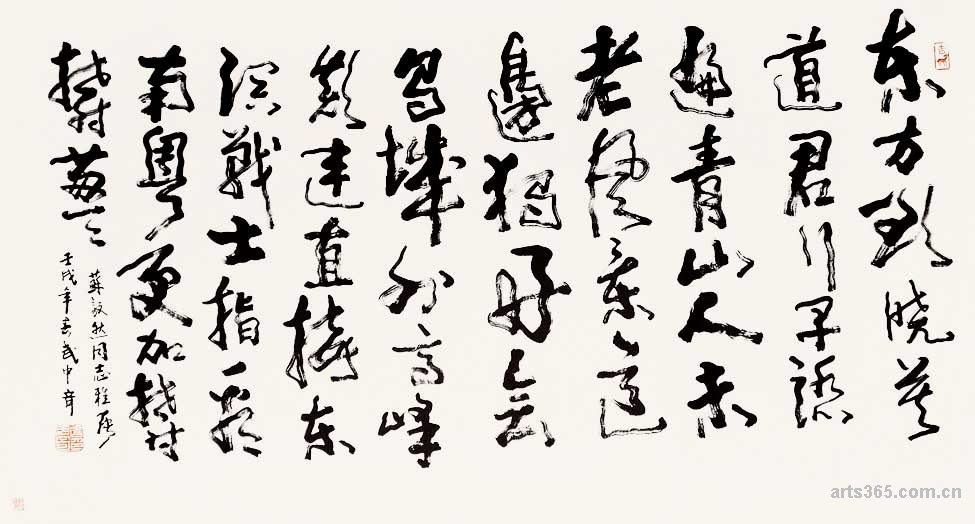 东方欲晓莫
道君行早踏
遍青山人未
老风景這
邊獨好会
昌城外高峰
颠連直接东
溟戰士指看
南粤更加欝
欝葱々
蘇毅然同志雅属
壬戌年春武中奇
arts365.com.cn